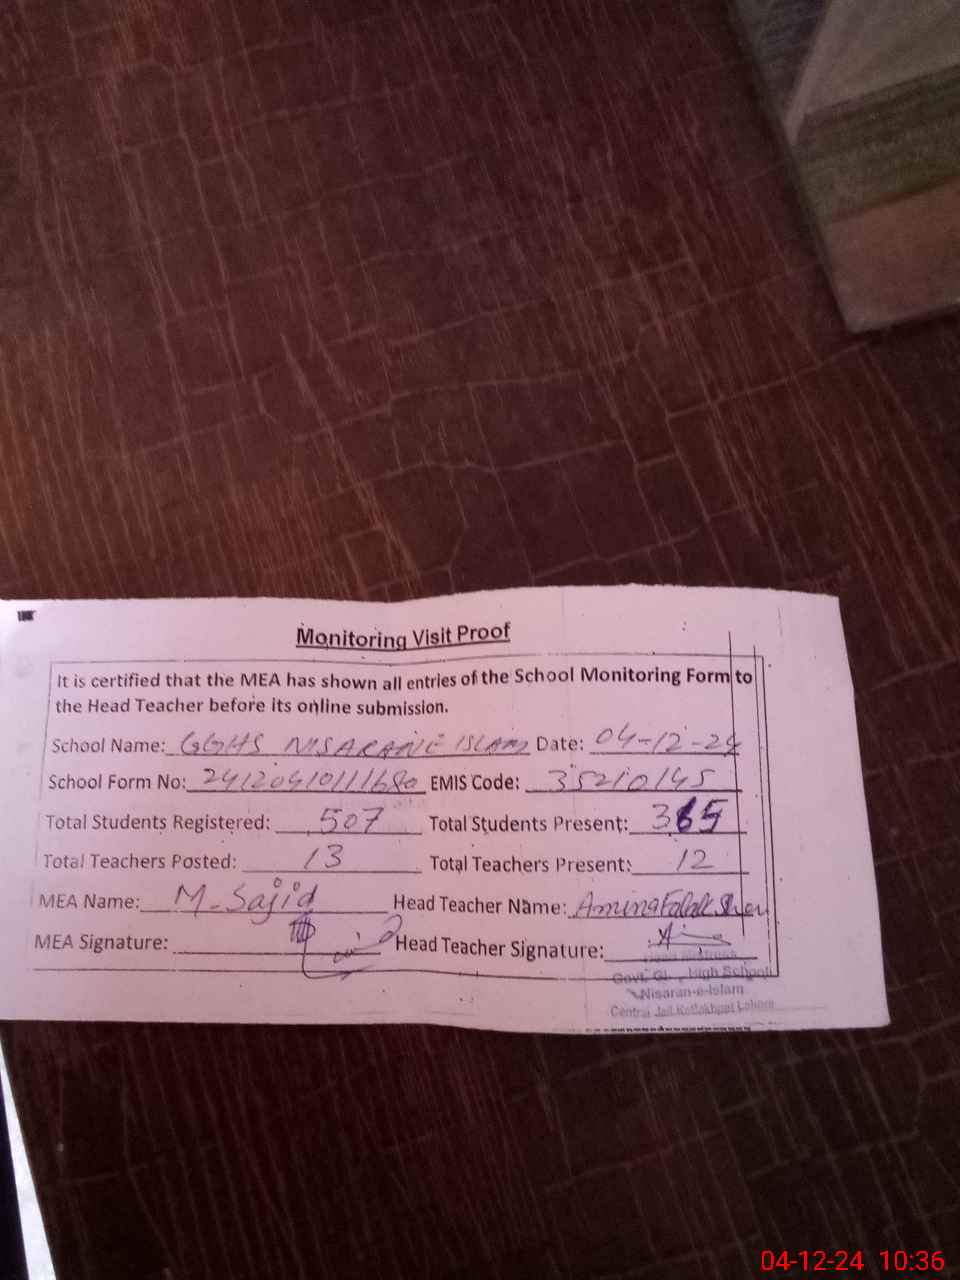 Monitoring Visit Proof
It is certified that the MEA has shown all entries of the School Monitoring Form to
the Head Teacher before its online submission.
School Name: GGHS NISARANE ISLAM Date: 04-12-24
School Form No: EMIS Code: 35210145
Total Students Registered: 507 Total Students Present: 365
Total Teachers Posted: 13 Total Teachers Present: 12
MEA Name: M. Sajid Head Teacher Name: Amina Falak Sher
MEA Signature: Head Teacher Signature:
Head Mistress
Govt. Gi High School
Nisaran-e-Islam
Central Jail Kotlakhpat Lahore
04-12-24 10:36